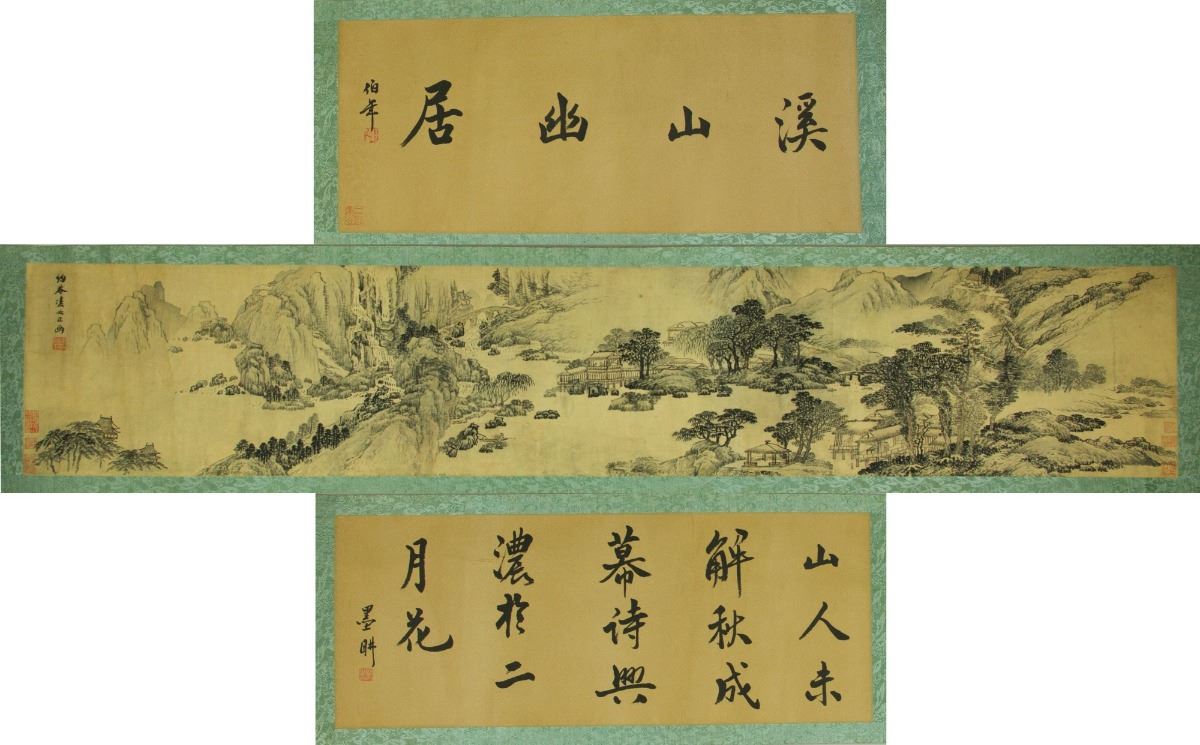 溪山幽居
伯年
山人未
解秋成
幕詩興
濃於二
月花
墨畊